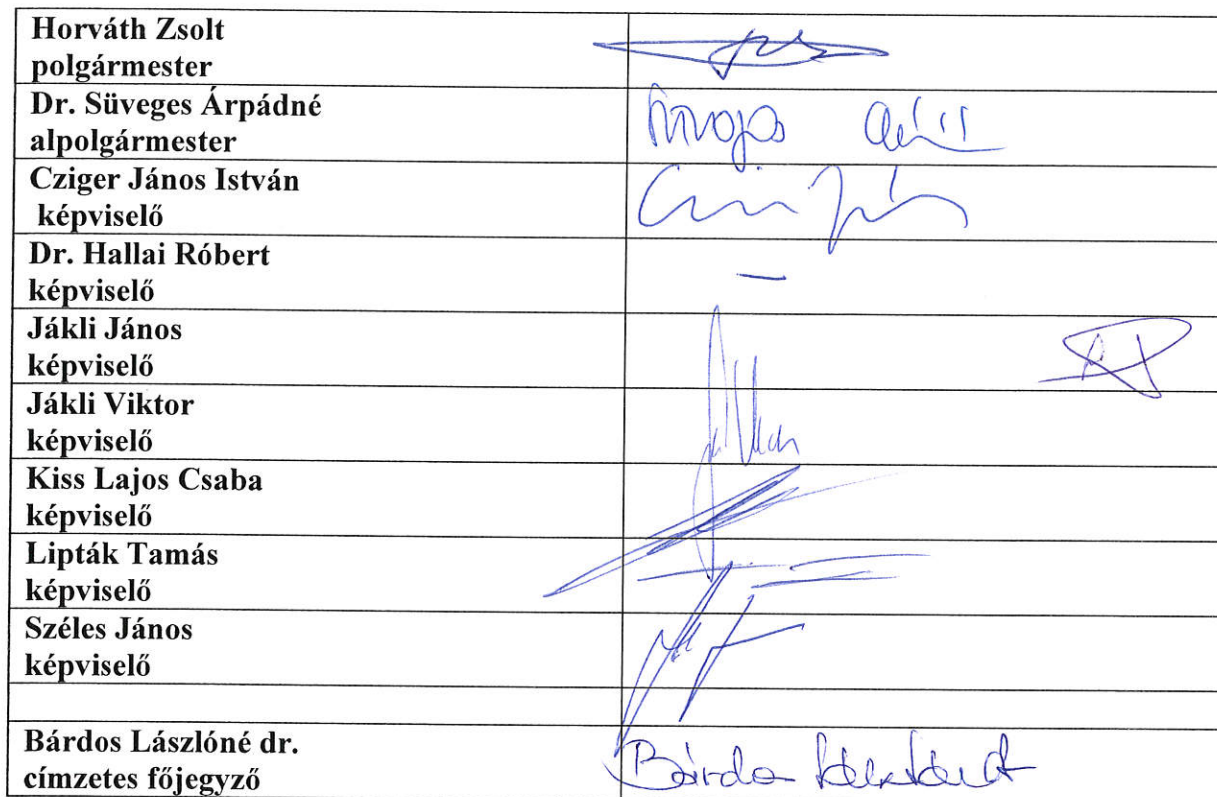 Horváth Zsolt
polgármester
Dr. Süveges Árpádné
alpolgármester
Cziger János István
képviselő
Dr. Hallai Róbert
képviselő
–
Jákli János
képviselő
Jákli Viktor
képviselő
Kiss Lajos Csaba
képviselő
Lipták Tamás
képviselő
Széles János
képviselő
Bárdos Lászlóné dr.
címzetes főjegyző